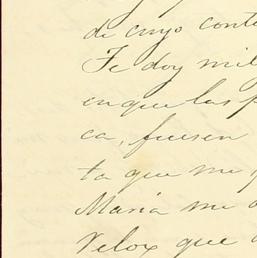 de cuyo conte
Te doy mil
en que las p
ca, fuesen
ta que me
Maria me
Velox que